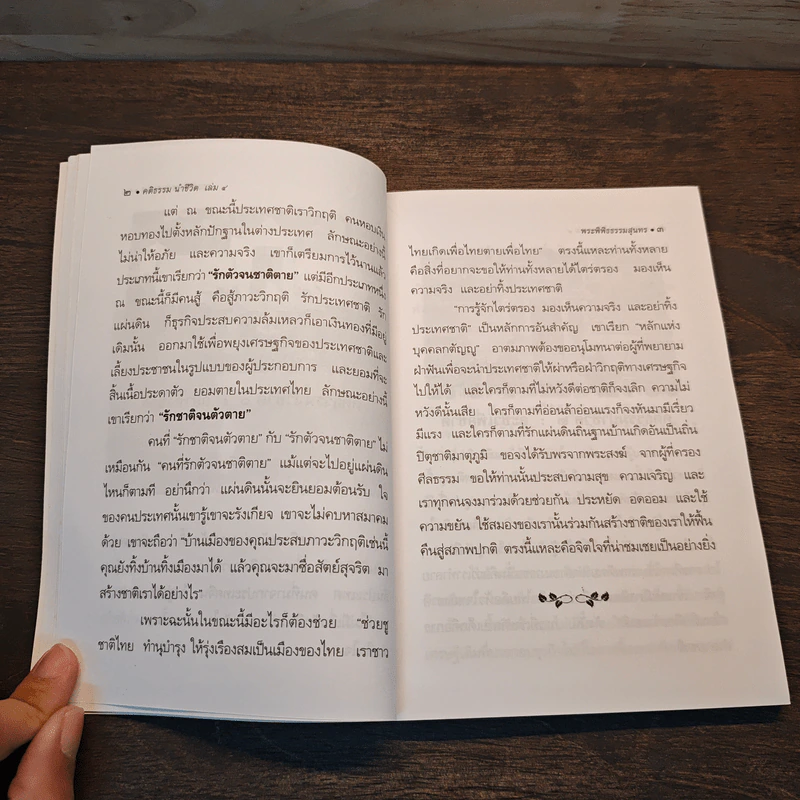 ๒ • คติธรรม นำชีวิต เล่ม ๙
แต่ ณ ขณะนี้ประเทศชาติเราวิกฤติ คนหอบเงิน
หอบทองไปตั้งหลักปักฐานในต่างประเทศ ลักษณะอย่างนี้
ไม่น่าให้อภัย และความจริง เขาก็เตรียมการไว้นานแล้ว
ประเภทนี้เขาเรียกว่า “รักตัวจนชาติตาย” แต่มีอีกประเภทหนึ่ง
ณ ขณะนี้ก็มีคนสู้ คือสู้ภาวะวิกฤติ รักประเทศชาติ รัก
แผ่นดิน ก็ธุรกิจประสบความล้มเหลวก็เอาเงินทองที่มีอยู่
เดิมนั้น ออกมาใช้เพื่อพยุงเศรษฐกิจของประเทศชาติและ
เลี้ยงประชาชนในรูปแบบของผู้ประกอบการ และยอมที่จะ
สิ้นเนื้อประดาตัว ยอมตายในประเทศไทย ลักษณะอย่างนี้
เขาเรียกว่า “รักชาติจนตัวตาย”
คนที่ “รักชาติจนตัวตาย” กับ “รักตัวจนชาติตาย” ไม่
เหมือนกัน “คนที่รักตัวจนชาติตาย” แม้แต่จะไปอยู่แผ่นดิน
ไหนก็ตามที อย่านึกว่า แผ่นดินนั้นจะยินยอมต้อนรับ ใจ
ของคนประเทศนั้นเขารู้เขาจะรังเกียจ เขาจะไม่คบหาสมาคม
ด้วย เขาจะถือว่า “บ้านเมืองของคุณประสบภาวะวิกฤติเช่นนี้
คุณยังทิ้งบ้านทิ้งเมืองมาได้ แล้วคุณจะมาซื่อสัตย์สุจริต มา
สร้างชาติเราได้อย่างไร”
เพราะฉะนั้นในขณะนี้มีอะไรก็ต้องช่วย “ช่วยชู
ชาติไทย ทำนุบำรุง ให้รุ่งเรืองสมเป็นเมืองของไทย เราชาว
พระพิพิธธรรมสุนทร • ๓
ไทยเกิดเพื่อไทยตายเพื่อไทย” ตรงนี้แหละท่านทั้งหลาย
คือสิ่งที่อยากจะขอให้ท่านทั้งหลายได้ไตร่ตรอง มองเห็น
ความจริง และอย่าทิ้งประเทศชาติ
“การรู้จักไตร่ตรอง มองเห็นความจริง และอย่าทิ้ง
ประเทศชาติ” เป็นหลักการอันสำคัญ เขาเรียก “หลักแห่ง
บุคคลกตัญญู” อาตมภาพต้องขออนุโมทนาต่อผู้ที่พยายาม
ฝ่าฟันเพื่อจะนำประเทศชาติให้ผ่าหรือฝ่าวิกฤติทางเศรษฐกิจ
ไปให้ได้ และใครก็ตามที่ไม่หวังดีต่อชาติก็จงเลิก ความไม่
หวังดีนั้นเสีย ใครก็ตามที่อ่อนล้าอ่อนแรงก็จงหันมามีเรี่ยว
มีแรง และใครก็ตามที่รักแผ่นดินถิ่นฐานบ้านเกิดอันเป็นถิ่น
ปิตุชาติมาตุภูมิ ขอจงได้รับพรจากพระสงฆ์ จากผู้ที่ครอง
ศีลธรรม ขอให้ท่านนั้นประสบความสุข ความเจริญ และ
เราทุกคนจงมาร่วมด้วยช่วยกัน ประหยัด อดออม และใช้
ความขยัน ใช้สมองของเรานั้นร่วมกันสร้างชาติของเราให้ฟื้น
คืนสู่สภาพปกติ ตรงนี้แหละคือจิตใจที่น่าชมเชยเป็นอย่างยิ่ง